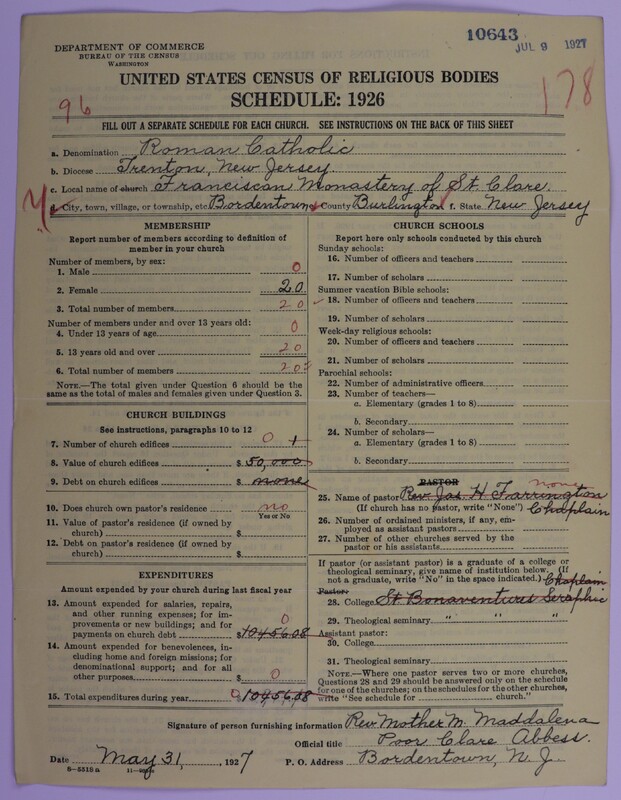 DEPARTMENT OF COMMERCE
BUREAU OF THE CENSUS
WASHINGTON
10643
JUL 9 1927
UNITED STATES CENSUS OF RELIGIOUS BODIES
SCHEDULE: 1926
96
178
FILL OUT A SEPARATE SCHEDULE FOR EACH CHURCH. SEE INSTRUCTIONS ON THE BACK OF THIS SHEET
a. Denomination Roman Catholic
b. Diocese Trenton, New Jersey
c. Local name of church Franciscan Monastery of St. Clare.
d. City, town, village, or township, etc. Bordentown e. County Burlington f. State New Jersey
MEMBERSHIP
Report number of members according to definition of
member in your church
Number of members, by sex:
1. Male 0
2. Female 20
3. Total number of members 20
Number of members under and over 13 years old:
4. Under 13 years of age 0
5. 13 years old and over 20
6. Total number of members 20
NOTE.—The total given under Question 6 should be
the same as the total of males and females given under Question 3.
CHURCH BUILDINGS
See instructions, paragraphs 10 to 12
7. Number of church edifices 0 1
8. Value of church edifices $ 50,000
9. Debt on church edifices $ none
10. Does church own pastor's residence no
Yes or No
11. Value of pastor's residence (if owned by
church) $
12. Debt on pastor's residence (if owned by
church) $
EXPENDITURES
Amount expended by your church during last fiscal year
13. Amount expended for salaries, repairs,
and other running expenses; for im-
provements or new buildings; and for
payments on church debt $ 10456.08 0
14. Amount expended for benevolences, in-
cluding home and foreign missions; for
denominational support; and for all
other purposes $ 0
15. Total expenditures during year 0 $ 10456.08
CHURCH SCHOOLS
Report here only schools conducted by this church
Sunday schools:
16. Number of officers and teachers
17. Number of scholars
Summer vacation Bible schools:
18. Number of officers and teachers
19. Number of scholars
Week-day religious schools:
20. Number of officers and teachers
21. Number of scholars
Parochial schools:
22. Number of administrative officers
23. Number of teachers—
a. Elementary (grades 1 to 8)
b. Secondary
24. Number of scholars—
a. Elementary (grades 1 to 8)
b. Secondary
PASTOR
none
25. Name of pastor Rev. Jas. H Farrington
(If church has no pastor, write "None") Chaplain
26. Number of ordained ministers, if any, em-
ployed as assistant pastors
27. Number of other churches served by the
pastor or his assistants
If pastor (or assistant pastor) is a graduate of a college or
theological seminary, give name of institution below. (If
not a graduate, write "No" in the space indicated.) Chaplain
Pastor:
28. College St Bonaventures Seraphic
29. Theological seminary " " "
Assistant pastor:
30. College
31. Theological seminary
NOTE.—Where one pastor serves two or more churches,
Questions 28 and 29 should be answered only on the schedule
for one of the churches; on the schedules for the other churches,
write "See schedule for church."
Signature of person furnishing information Rev. Mother M. Maddalena
Official title Poor Clare Abbess.
Date May 31, 1927 P. O. Address Bordentown, N. J.
8—5518 a